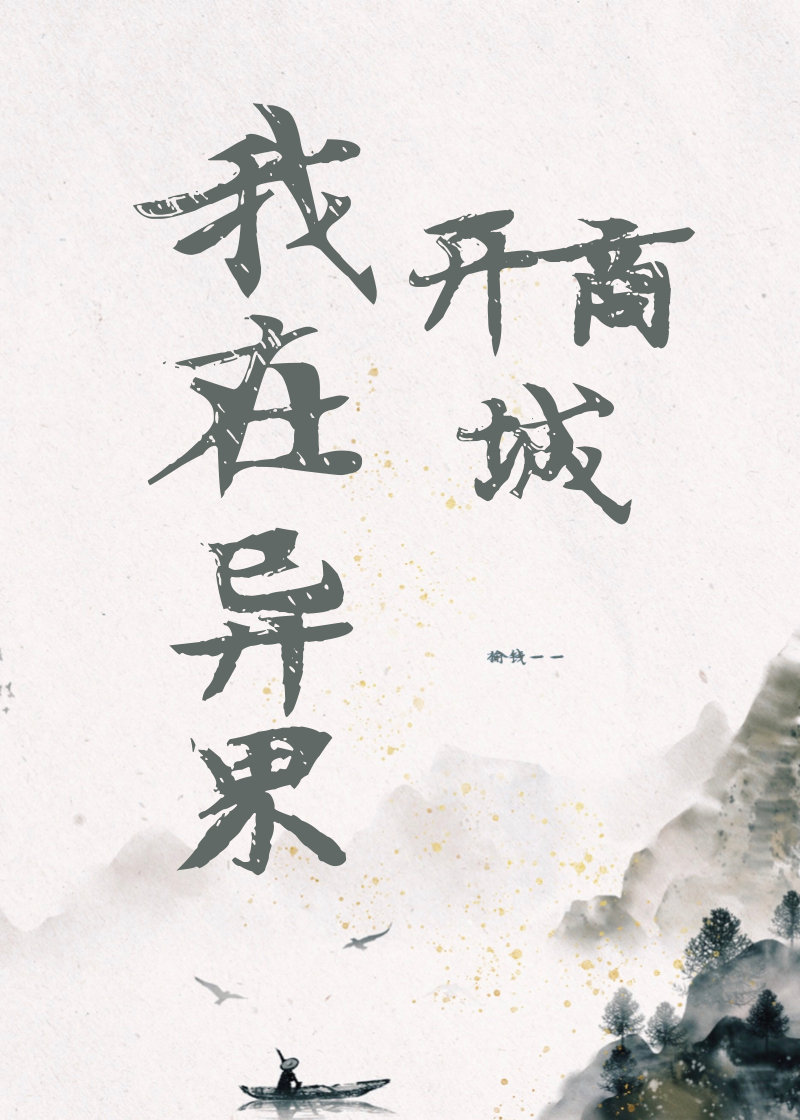 我在异果
开商
城
榆钱一一